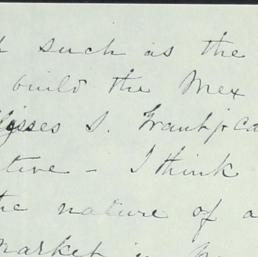 such as the
build the Mex
S. Grant
tive - I think
the nature of a
market in